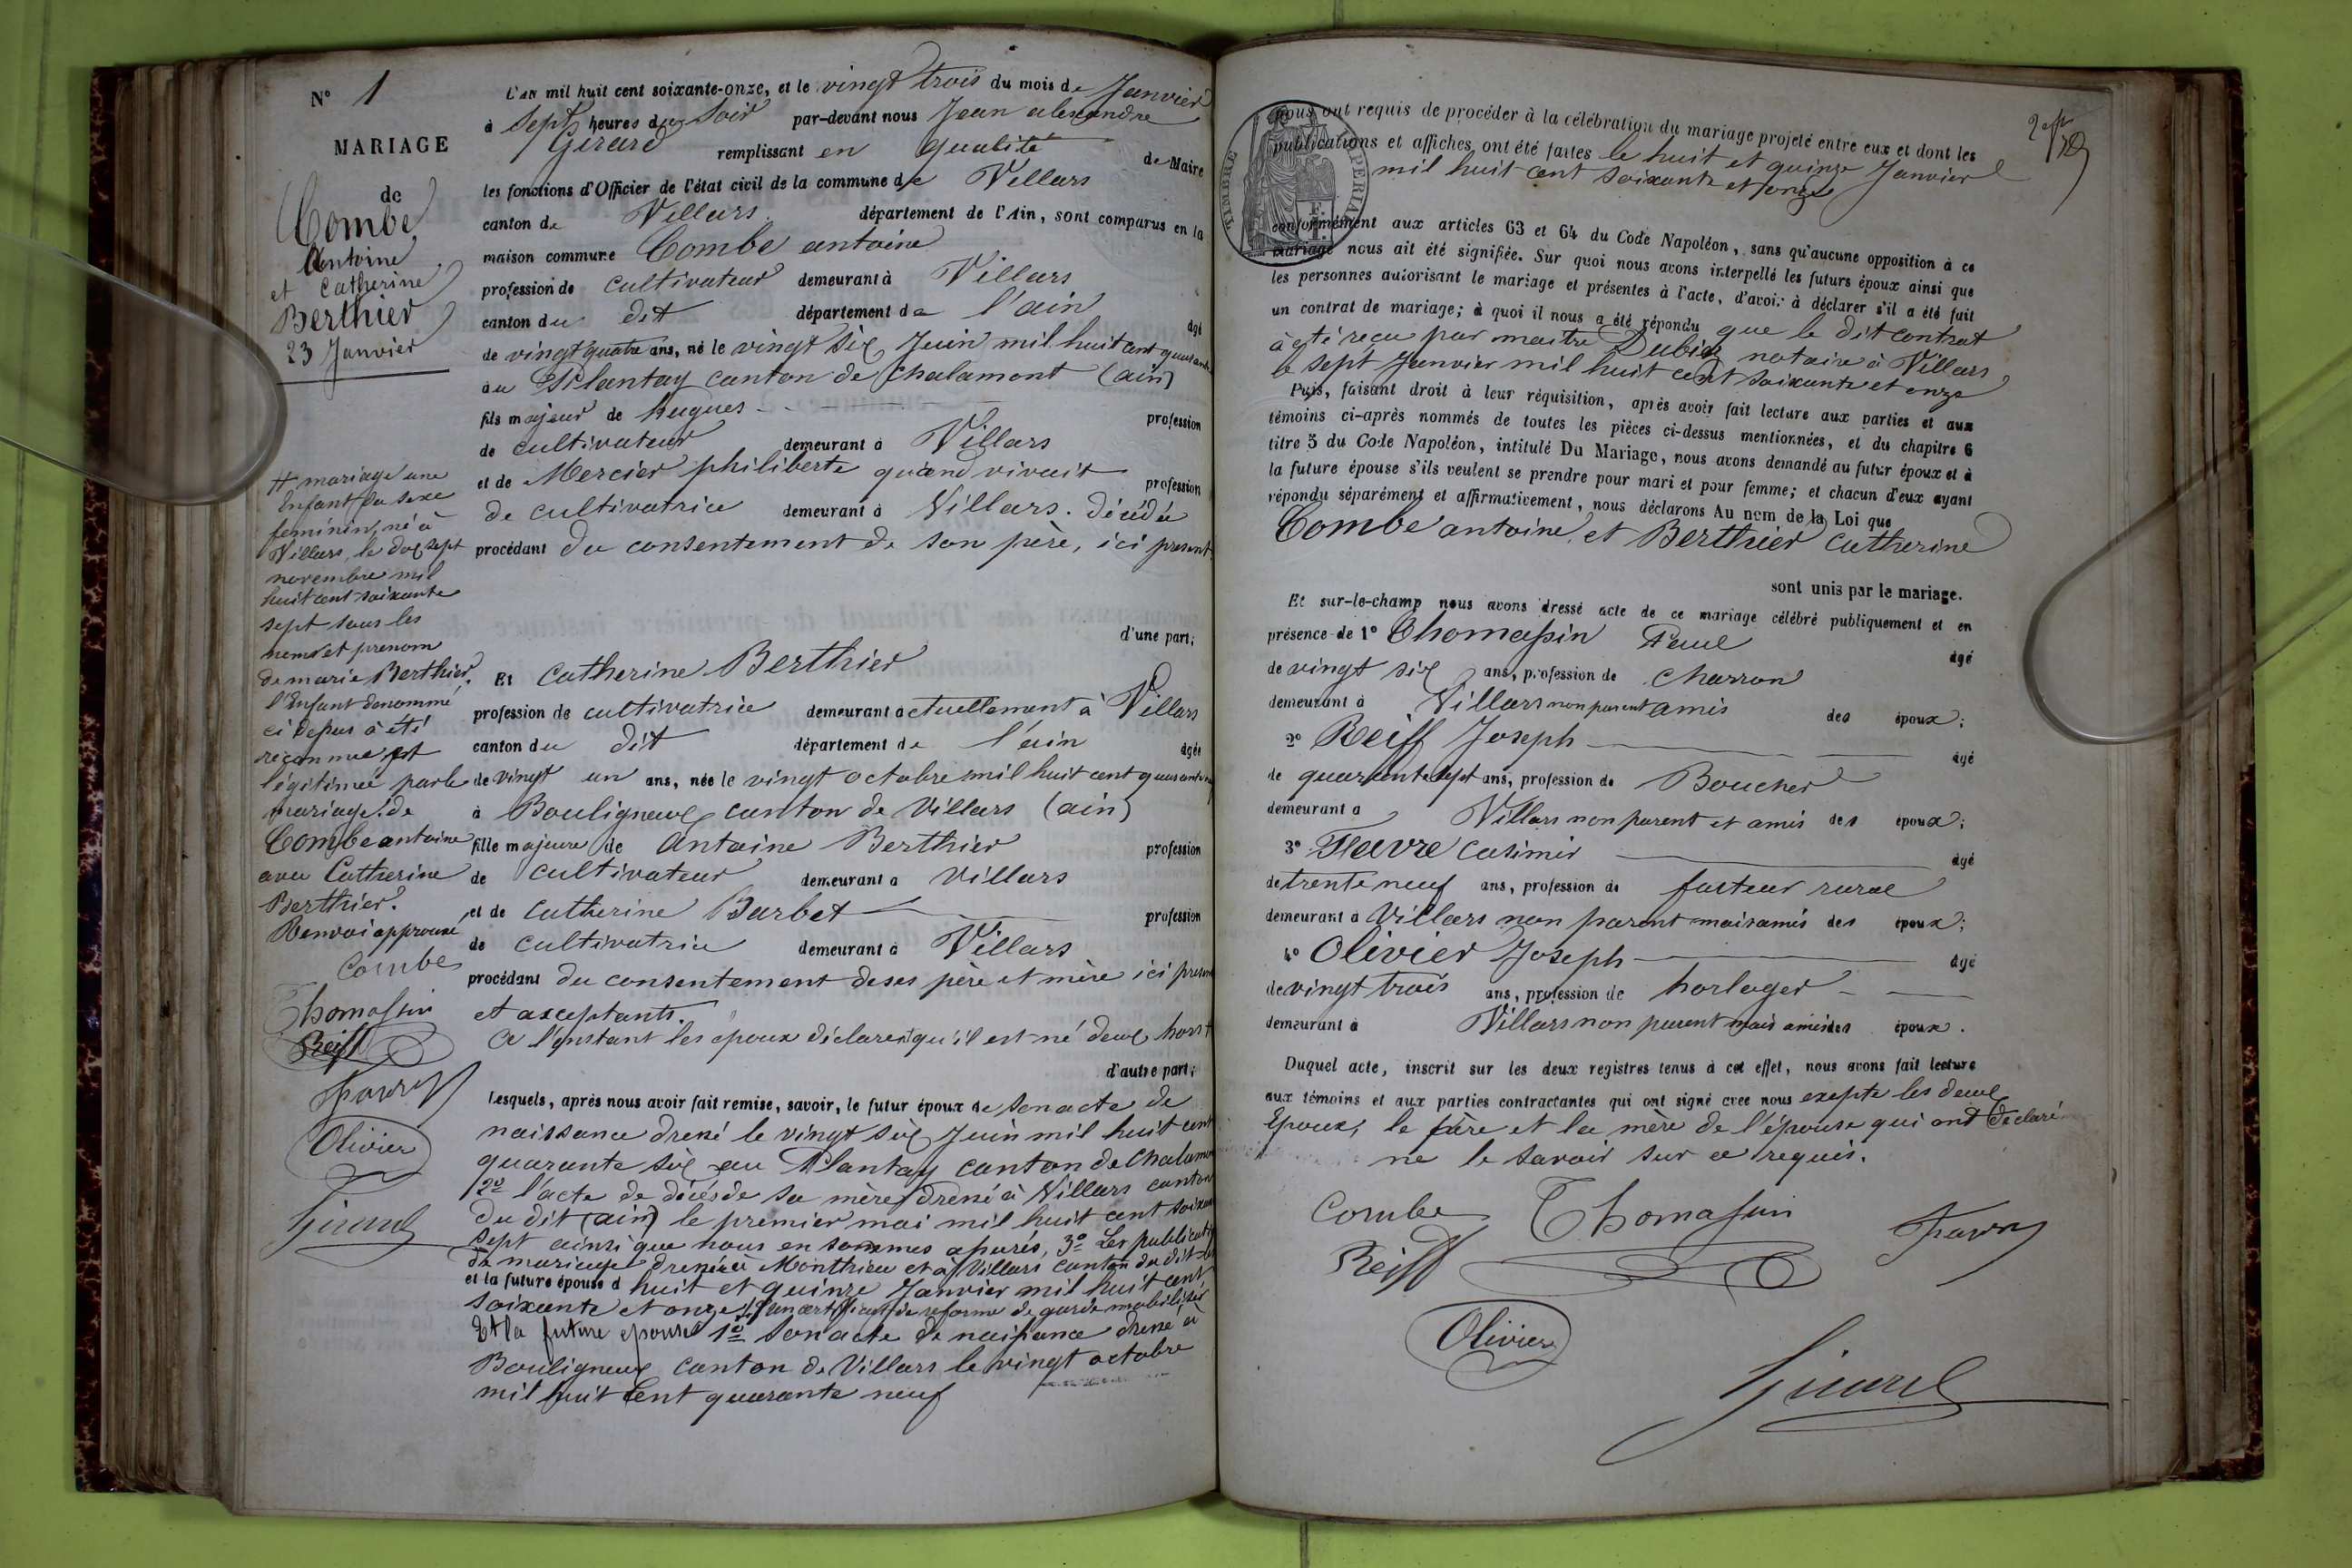 N° 1
MARIAGE
de
Combe
Antoine
et Catherine
Berthier
23 Janvier
# mariage une
Enfant du sexe
feminin, né à
Villars, le dix sept
novembre mil
huit cent soixante
sept sous les
noms et prenom
de marie Berthier.
l'Enfant denommé
ci depus à été
reconnue et
légitimée par le
mariage de
Combe antoine
avec Catherine
Berthier.
Renvoi approuvé
Combe
Thomassin
Reiff
Favre
Olivier
Girard
L'an mil huit cent soixante-onze, et le vingt trois du mois de Janvier
à sept heures du soir par-devant nous Jean alexandre
Girard remplissant en qualité de Maire
les fonctions d'Officier de l'état civil de la commune de Villars
canton de Villars département de l'Ain, sont comparus en la
maison commune Combe antoine
profession de cultivateur demeurant à Villars
canton du dit département de l'ain âgé
de vingt quatre ans, né le vingt six Juin mil huit cent quarante
au Plantay canton de Chalamont (ain)
fils majeur de hugues profession
de cultivateur demeurant à Villars
et de Mercier philiberte quand vivait profession
de cultivatrice demeurant à Villars. décédée
procédant du consentement de son père, ici present
d'une part;
Et Catherine Berthier
profession de cultivatrice demeurant actuellement à Villars
canton du dit département de l'ain âgée
de vingt un ans, née le vingt octobre mil huit cent quarante
à Bouligneux canton de Villars (ain)
fille majeure de Antoine Berthier profession
de cultivateur demeurant à Villars
et de Catherine Barbet profession
de cultivatrice demeurant à Villars
procédant du consentement de ses père et mère ici present
et acceptants.
A l'instant les epoux déclarent qu'il est né deux hors #
d'autre part;
Lesquels, après nous avoir fait remise, savoir, le futur époux de son acte de
naissance dressé le vingt six Juin mil huit cent
quarante six au Plantay canton de Chalamont
2° l'acte de décès de sa mère dressé à Villars canton
du dit (ain) le premier mai mil huit cent soixante
sept ainsi que nous en sommes apurés, 3° Les publications
de mariage dressées à Monthieu et à Villars canton du dit les
et la future épouse d huit et quinze Janvier mil huit cent
soixante et onze 4° un certificat de reforme de garde mobilisée
Et la future epouse 1° son acte de naissance dressé à
Bouligneux canton de Villars le vingt octobre
mil huit Cent quarante neuf
TIMBRE IMPERIAL
nous ont requis de procéder à la célébration du mariage projeté entre eux et dont les
publications et affiches ont été faites le huit et quinze Janvier
mil huit cent soixante et onze
conformément aux articles 63 et 64 du Code Napoléon, sans qu'aucune opposition à ce
mariage nous ait été signifiée. Sur quoi nous avons interpellé les futurs époux ainsi que
les personnes autorisant le mariage et présentes à l'acte, d'avoir à déclarer s'il a été fait
un contrat de mariage; à quoi il nous a été répondu que le dit contrat
à été reçu par maitre notaire à Villars
le sept Janvier mil huit cent soixante et onze
Puis, faisant droit à leur réquisition, après avoir fait lecture aux parties et aux
témoins ci-après nommés de toutes les pièces ci-dessus mentionnées, et du chapitre 6
titre 5 du Code Napoléon, intitulé Du Mariage, nous avons demandé au futur époux et à
la future épouse s'ils veulent se prendre pour mari et pour femme; et chacun d'eux ayant
répondu séparément et affirmativement, nous déclarons Au nom de la Loi que
Combe antoine, et Berthier Catherine
sont unis par le mariage.
Et sur-le-champ nous avons dressé acte de ce mariage célébré publiquement et en
présence de 1° Thomassin Paul âgé
de vingt six ans, profession de Charron
demeurant à Villars non parent amis des époux;
2° Reiff Joseph âgé
de quarante sept ans, profession de Boucher
demeurant à Villars non parent et amis des époux;
3° Favre Casimir âgé
de trente neuf ans, profession de facteur rural
demeurant à Villars non parent mais amis des époux;
4° Olivier Joseph âgé
de vingt trois ans, profession de horloger
demeurant à Villars non parent mais amis des époux.
Duquel acte, inscrit sur les deux registres tenus à cet effet, nous avons fait lecture
aux témoins et aux parties contractantes qui ont signé avec nous exepte les deux
Epoux, le père et la mère de l'épouse qui ont déclaré
ne le savoir sur ce requis.
Combe Thomassin Favre
Reiff
Olivier
Girard